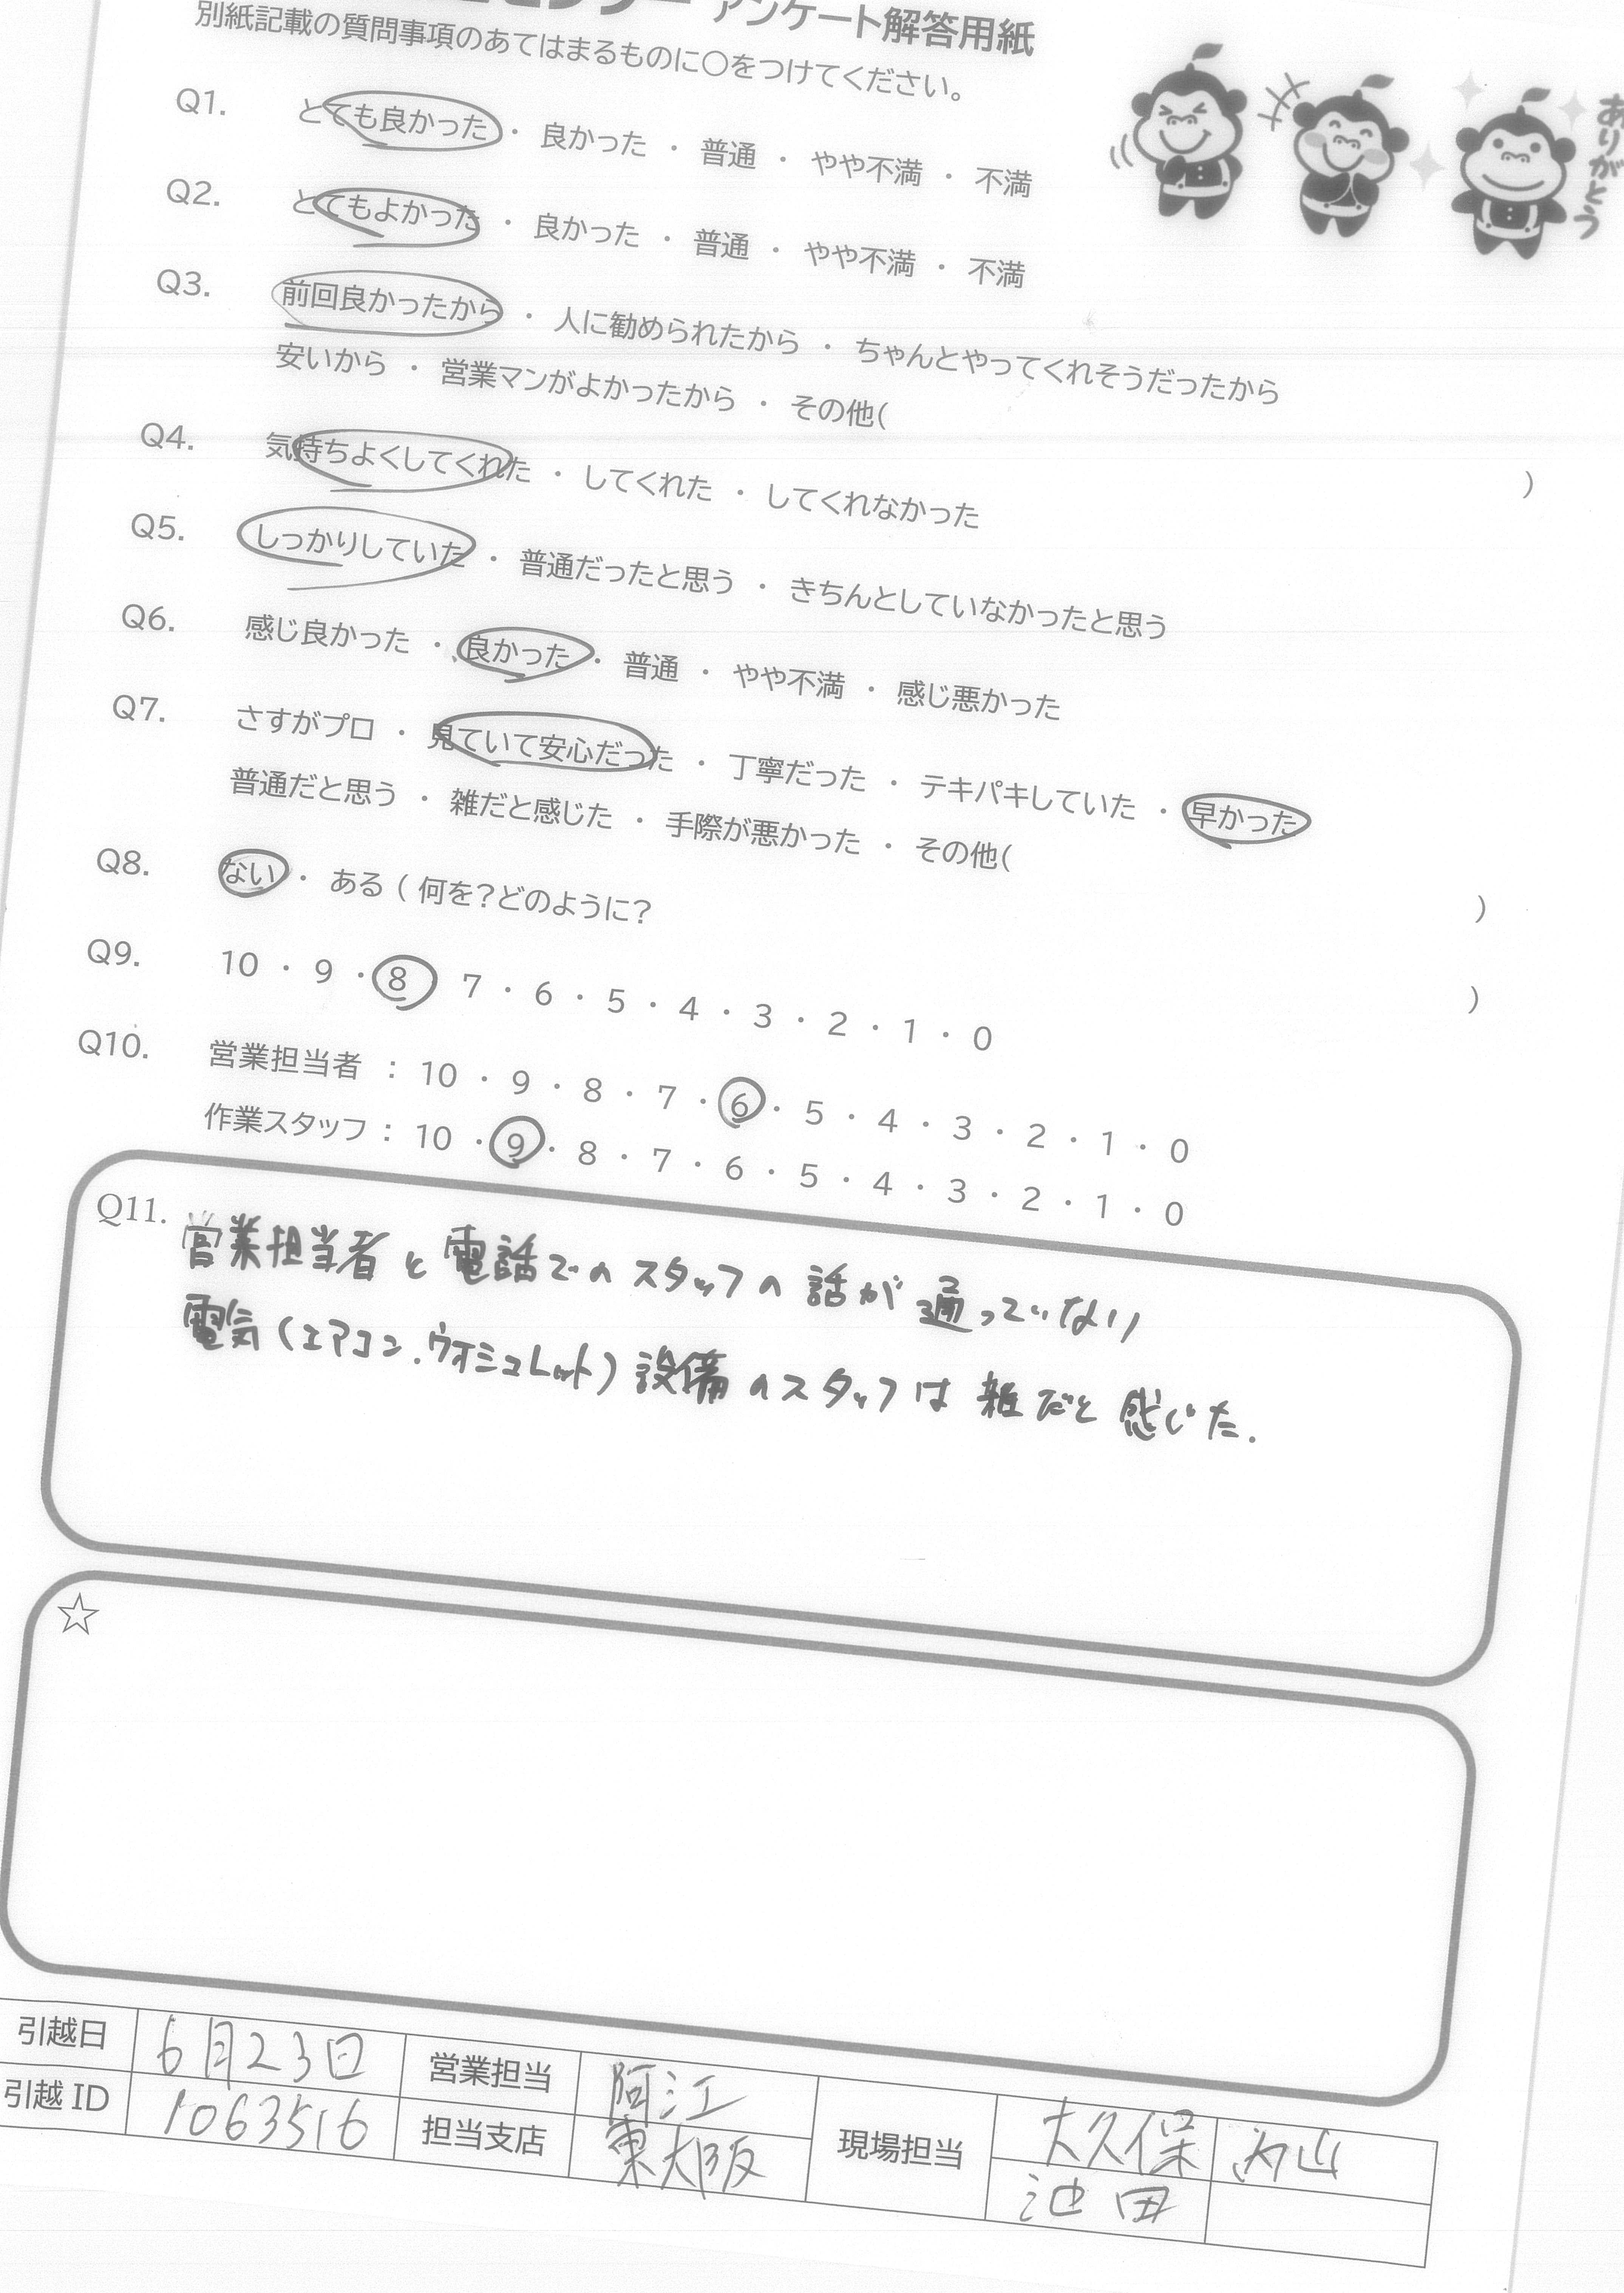 アンケート解答用紙
別紙記載の質問事項のあてはまるものに○をつけてください。
ありがとう
Q1. とても良かった ・ 良かった ・ 普通 ・ やや不満 ・ 不満
Q2. とてもよかった ・ 良かった ・ 普通 ・ やや不満 ・ 不満
Q3. 前回良かったから ・ 人に勧められたから ・ ちゃんとやってくれそうだったから
安いから ・ 営業マンがよかったから ・ その他( )
Q4. 気持ちよくしてくれた ・ してくれた ・ してくれなかった
Q5. しっかりしていた ・ 普通だったと思う ・ きちんとしていなかったと思う
Q6. 感じ良かった ・ 良かった ・ 普通 ・ やや不満 ・ 感じ悪かった
Q7. さすがプロ ・ 見ていて安心だった ・ 丁寧だった ・ テキパキしていた ・ 早かった
普通だと思う ・ 雑だと感じた ・ 手際が悪かった ・ その他( )
Q8. ない ・ ある ( 何を?どのように? )
Q9. 10 ・ 9 ・ 8 7 ・ 6 ・ 5 ・ 4 ・ 3 ・ 2 ・ 1 ・ 0
Q10. 営業担当者 : 10 ・ 9 ・ 8 ・ 7 ・ 6 ・ 5 ・ 4 ・ 3 ・ 2 ・ 1 ・ 0
作業スタッフ : 10 ・ 9 ・ 8 ・ 7 ・ 6 ・ 5 ・ 4 ・ 3 ・ 2 ・ 1 ・ 0
Q11. 営業担当者と電話でのスタッフの話が通っていない
電気(エアコン.ウオシュレット)設備のスタッフは雑だと感じた.
☆
引越日 6月23日 営業担当 阿江 現場担当 大久保 内山
引越 ID 1063516 担当支店 東大阪 池田